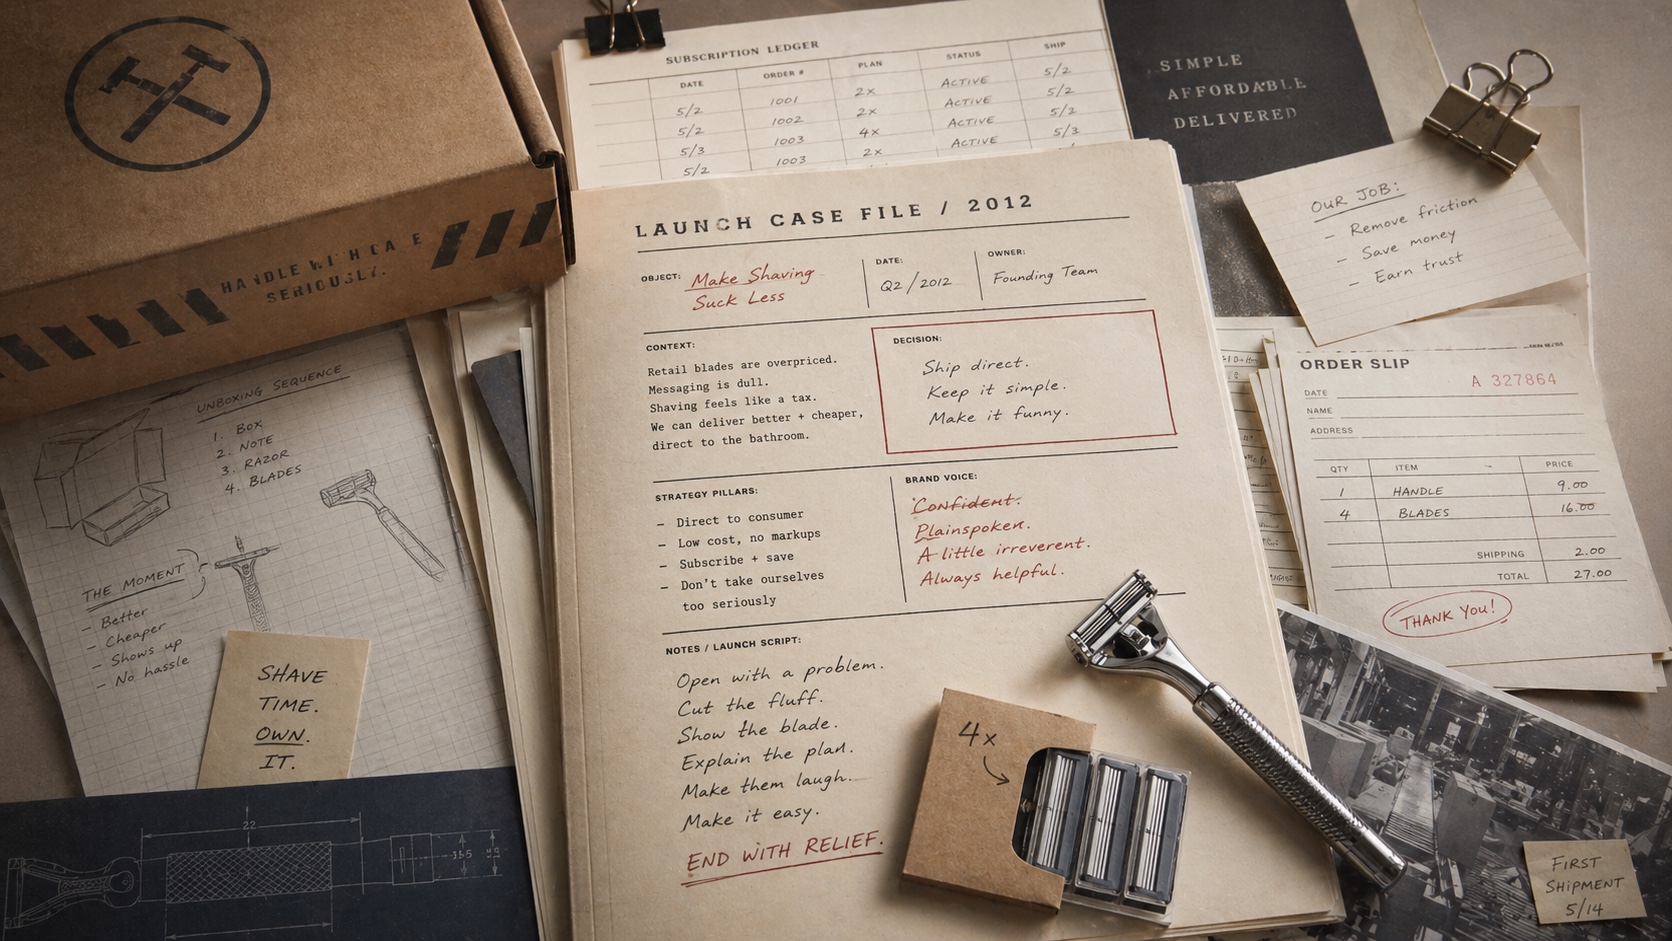 HANDLE WITH CARE
SERIOUSLY.
SUBSCRIPTION LEDGER
DATE ORDER # PLAN STATUS SHIP
5/2 1001 2x ACTIVE 5/2
5/2 1002 2x ACTIVE 5/2
5/3 1003 4x ACTIVE 5/3
5/2 1003 2x ACTIVE
SIMPLE
AFFORDABLE
DELIVERED
OUR JOB:
- Remove friction
- Save money
- Earn trust
LAUNCH CASE FILE / 2012
OBJECT: Make Shaving
Suck Less
DATE:
Q2/2012
OWNER:
Founding Team
CONTEXT:
Retail blades are overpriced.
Messaging is dull.
Shaving feels like a tax.
We can deliver better + cheaper,
direct to the bathroom.
DECISION:
Ship direct.
Keep it simple.
Make it funny.
STRATEGY PILLARS:
- Direct to consumer
- Low cost, no markups
- Subscribe + save
- Don't take ourselves
too seriously
BRAND VOICE:
Confident.
Plainspoken.
A little irreverent.
Always helpful.
NOTES / LAUNCH SCRIPT:
Open with a problem.
Cut the fluff.
Show the blade.
Explain the plan.
Make them laugh.
Make it easy.
END WITH RELIEF.
4x
UNBOXING SEQUENCE
1. BOX
2. NOTE
3. RAZOR
4. BLADES
THE MOMENT
- Better
- Cheaper
- Shows up
- No hassle
SHAVE
TIME.
OWN.
IT.
22
ORDER SLIP
A 327864
DATE
NAME
ADDRESS
QTY ITEM PRICE
1 HANDLE 9.00
4 BLADES 16.00
SHIPPING 2.00
TOTAL 27.00
THANK YOU!
FIRST
SHIPMENT
5/14